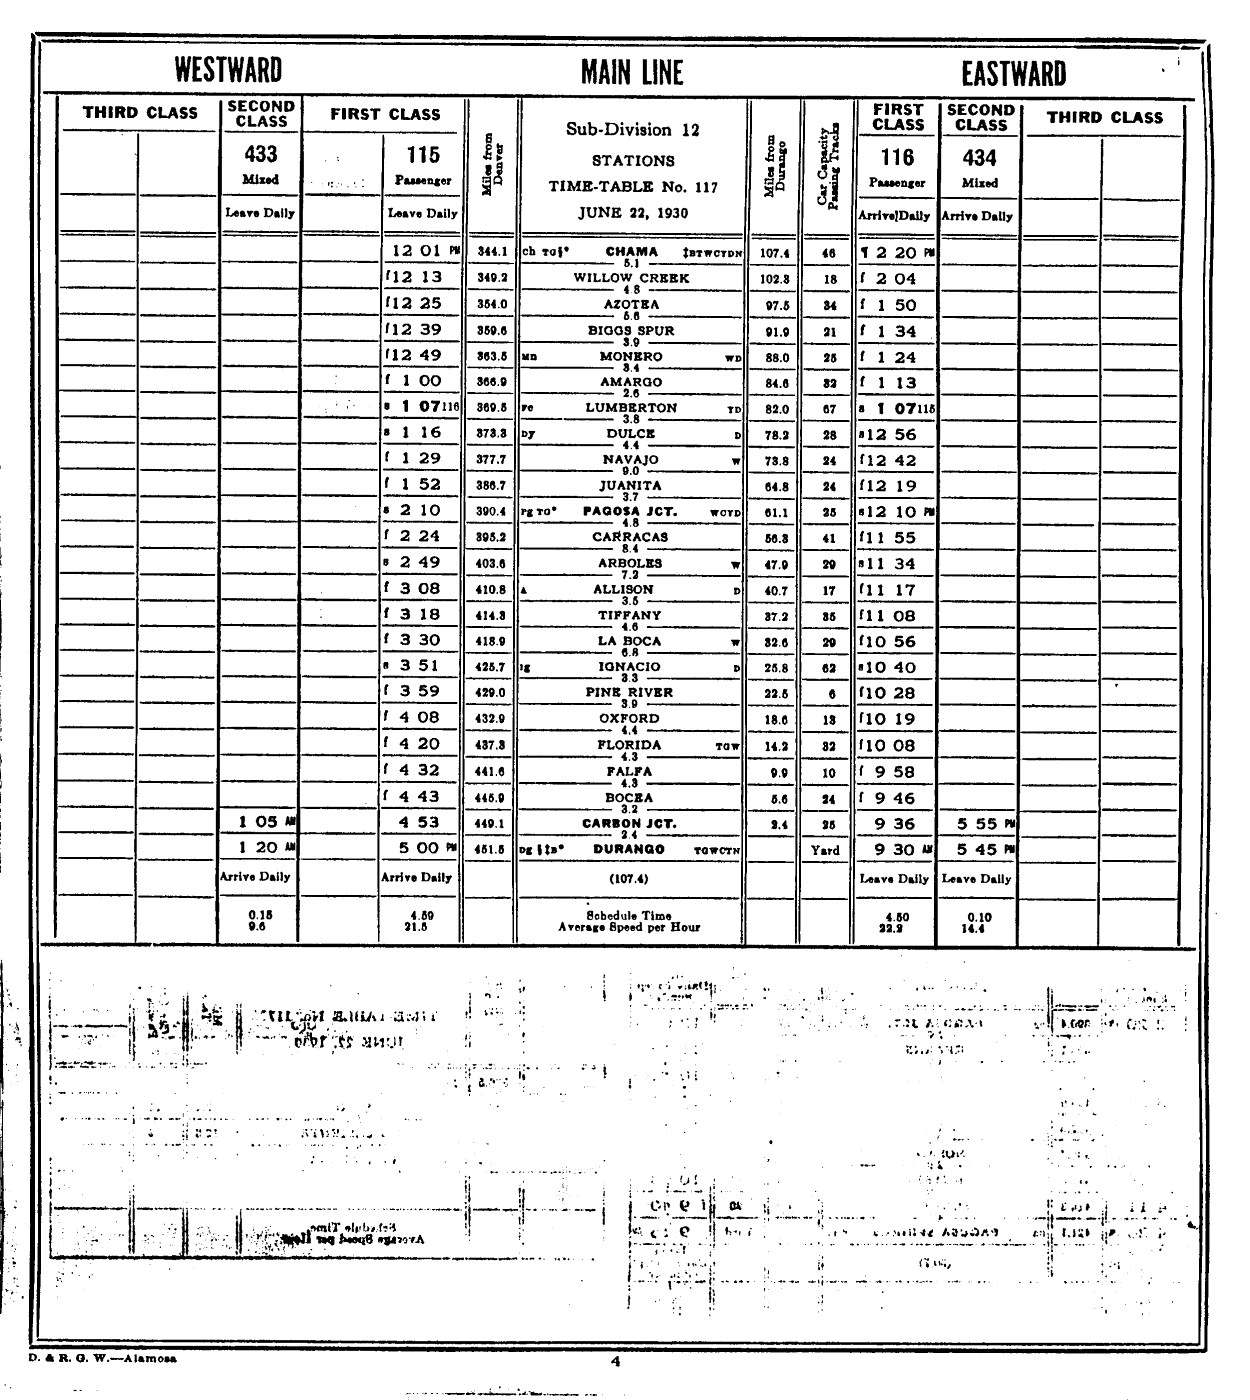 WESTWARD MAIN LINE EASTWARD
THIRD CLASS SECOND CLASS FIRST CLASS Miles from Denver Sub-Division 12 Miles from Durango Car Capacity Passing Tracks FIRST CLASS SECOND CLASS THIRD CLASS
433 115 STATIONS 116 434
Mixed Passenger TIME-TABLE No. 117 Passenger Mixed
Leave Daily Leave Daily JUNE 22, 1930 Arrive Daily Arrive Daily
12 01 PM 344.1 ch TG§* CHAMA ‡BTWCYDN 107.4 46 ¶ 2 20 PM
5.1
f 12 13 349.2 WILLOW CREEK 102.3 18 f 2 04
4.8
f 12 25 354.0 AZOTEA 97.5 34 f 1 50
5.6
f 12 39 359.6 BIGGS SPUR 91.9 21 f 1 34
3.9
f 12 49 363.5 MN MONERO WD 88.0 25 f 1 24
3.4
f 1 00 366.9 AMARGO 84.6 32 f 1 13
2.6
s 1 07 116 369.5 FC LUMBERTON YD 82.0 67 s 1 07 115
3.8
s 1 16 373.3 DY DULCE D 78.2 28 s 12 56
4.4
f 1 29 377.7 NAVAJO W 73.8 24 f 12 42
9.0
f 1 52 386.7 JUANITA 64.8 24 f 12 19
3.7
s 2 10 390.4 PG TG* PAGOSA JCT. WCYD 61.1 25 s 12 10 PM
4.8
f 2 24 395.2 CARRACAS 56.3 41 f 11 55
8.4
s 2 49 403.6 ARBOLES W 47.9 29 s 11 34
7.2
f 3 08 410.8 A ALLISON D 40.7 17 f 11 17
3.5
f 3 18 414.3 TIFFANY 37.2 35 f 11 08
4.6
f 3 30 418.9 LA BOCA W 32.6 29 f 10 56
6.8
s 3 51 425.7 IG IGNACIO D 25.8 62 s 10 40
3.3
f 3 59 429.0 PINE RIVER 22.5 6 f 10 28
3.9
f 4 08 432.9 OXFORD 18.6 13 f 10 19
4.4
f 4 20 437.3 FLORIDA TGW 14.2 32 f 10 08
4.3
f 4 32 441.6 FALFA 9.9 10 f 9 58
4.3
f 4 43 445.9 BOCEA 5.6 24 f 9 46
3.2
1 05 AM 4 53 449.1 CARBON JCT. 2.4 25 9 36 5 55 PM
2.4
1 20 AM 5 00 PM 451.5 DURANGO TGWCTN Yard 9 30 AM 5 45 PM
Arrive Daily Arrive Daily (107.4) Leave Daily Leave Daily
0.15 4.59 Schedule Time 4.50 0.10
9.6 21.5 Average Speed per Hour 22.2 14.4
TIME TABLE No. 117
JUNE 22, 1930
Schedule Time
Average Speed per Hour
D. & R. G. W.—Alamosa
4